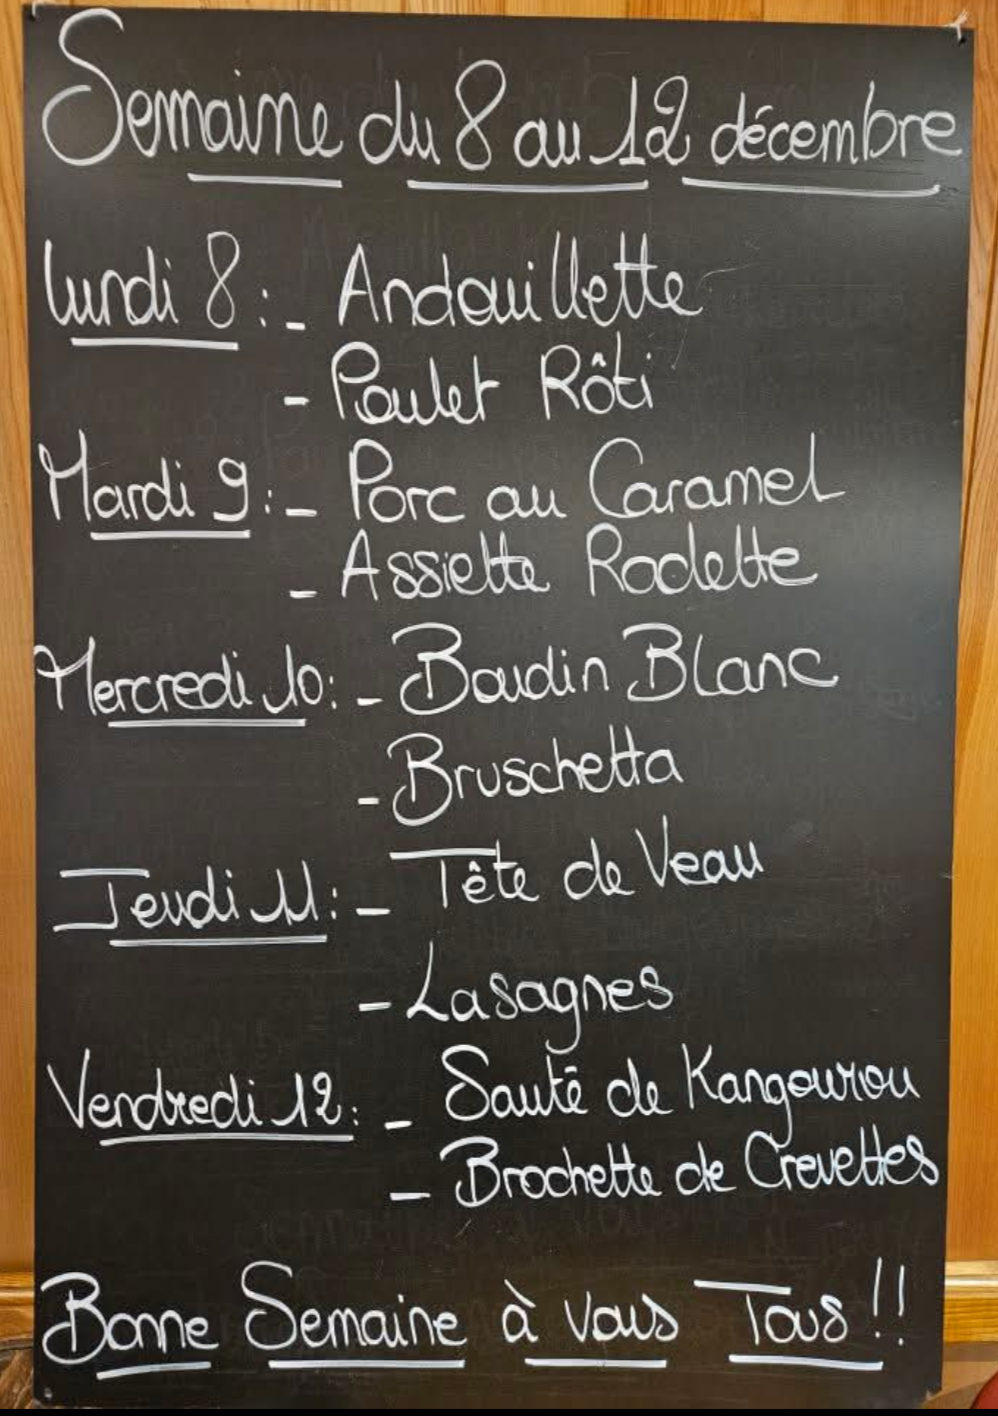 Semaine du 8 au 12 décembre
Lundi 8 : - Andouillette
- Poulet Rôti
Mardi 9 : - Porc au Caramel
- Assiette Raclette
Mercredi 10 : - Boudin Blanc
- Bruschetta
Jeudi 11 : - Tête de Veau
- Lasagnes
Vendredi 12 : - Sauté de Kangourou
- Brochette de Crevettes
Bonne Semaine à vous Tous !!